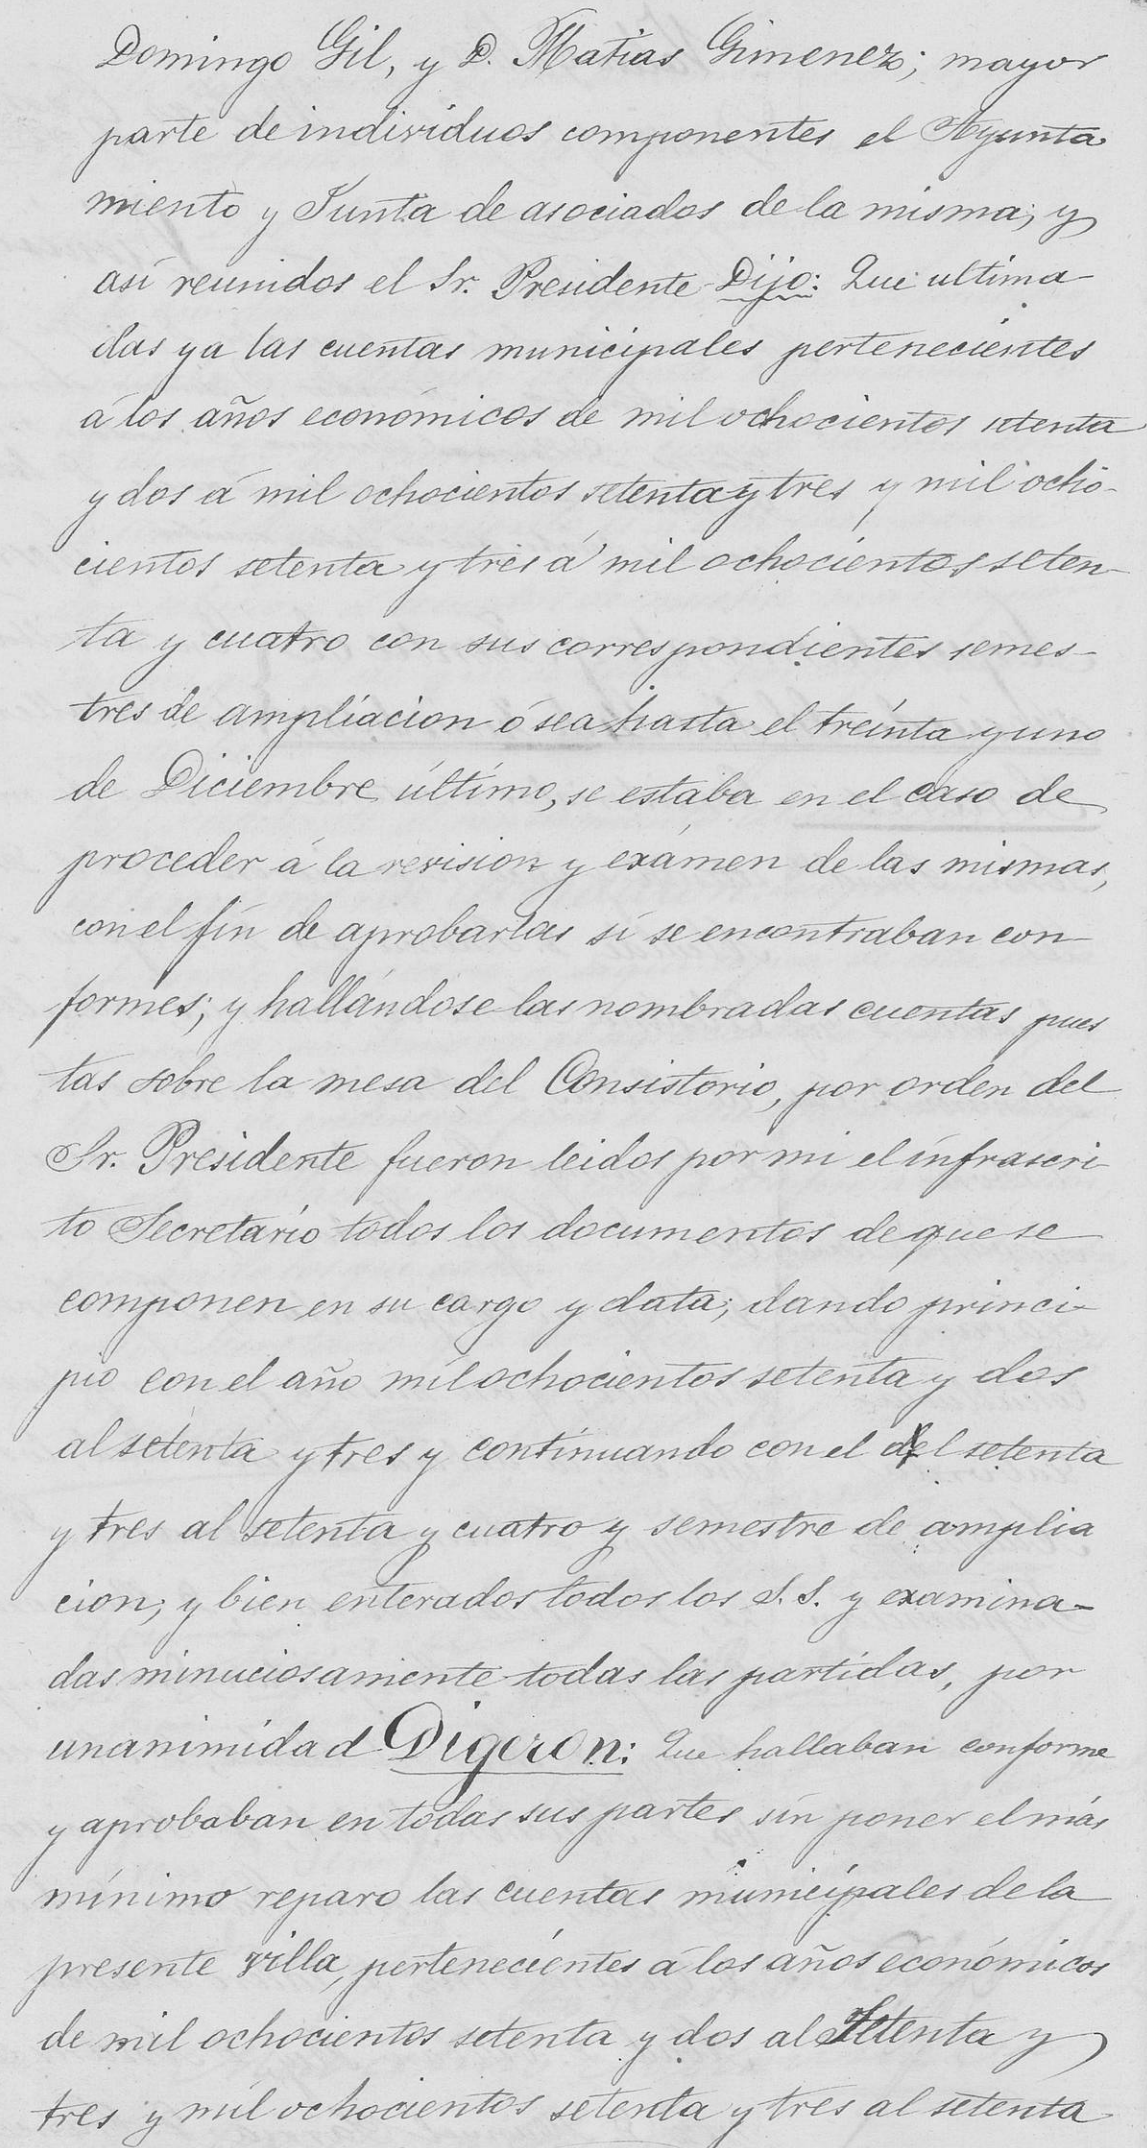 Domingo Gil, y D. Matias Gimenez; mayor
parte de individuos componentes el Ayunta
miento y Junta de asociados de la misma; y
así reunidos el Sr. Presidente Dijo: Que ultima
das ya las cuentas municipales pertenecientes
á los años económicos de mil ochocientos setenta
y dos á mil ochocientos setenta y tres y mil ocho-
cientos setenta y tres á mil ochocientos seten-
ta y cuatro con sus correspondientes semes-
tres de ampliacion ó sea hasta el treinta y uno
de Diciembre último, se estaba en el caso de
proceder á la revision y exámen de las mismas,
con el fin de aprobarlas si se encontraban con
formes; y hallándose las nombradas cuentas pues
tas sobre la mesa del Consistorio, por orden del
Sr. Presidente fueron leidos por mi el infrascri-
to Secretario todos los documentos de que se
componen en su cargo y data; dando princi-
pio con el año mil ochocientos setenta y dos
al setenta y tres y continuando con el del setenta
y tres al setenta y cuatro y semestre de amplia
cion; y bien enterados todos los S. S. y examina-
das minuciosamente todas las partidas, por
unanimidad Digeron: Que hallaban conforme
y aprobaban en todas sus partes sin poner el más
mínimo reparo las cuentas municipales de la
presente villa, pertenecientes á los años económicos
de mil ochocientos setenta y dos al Setenta y
tres y mil ochocientos setenta y tres al setenta